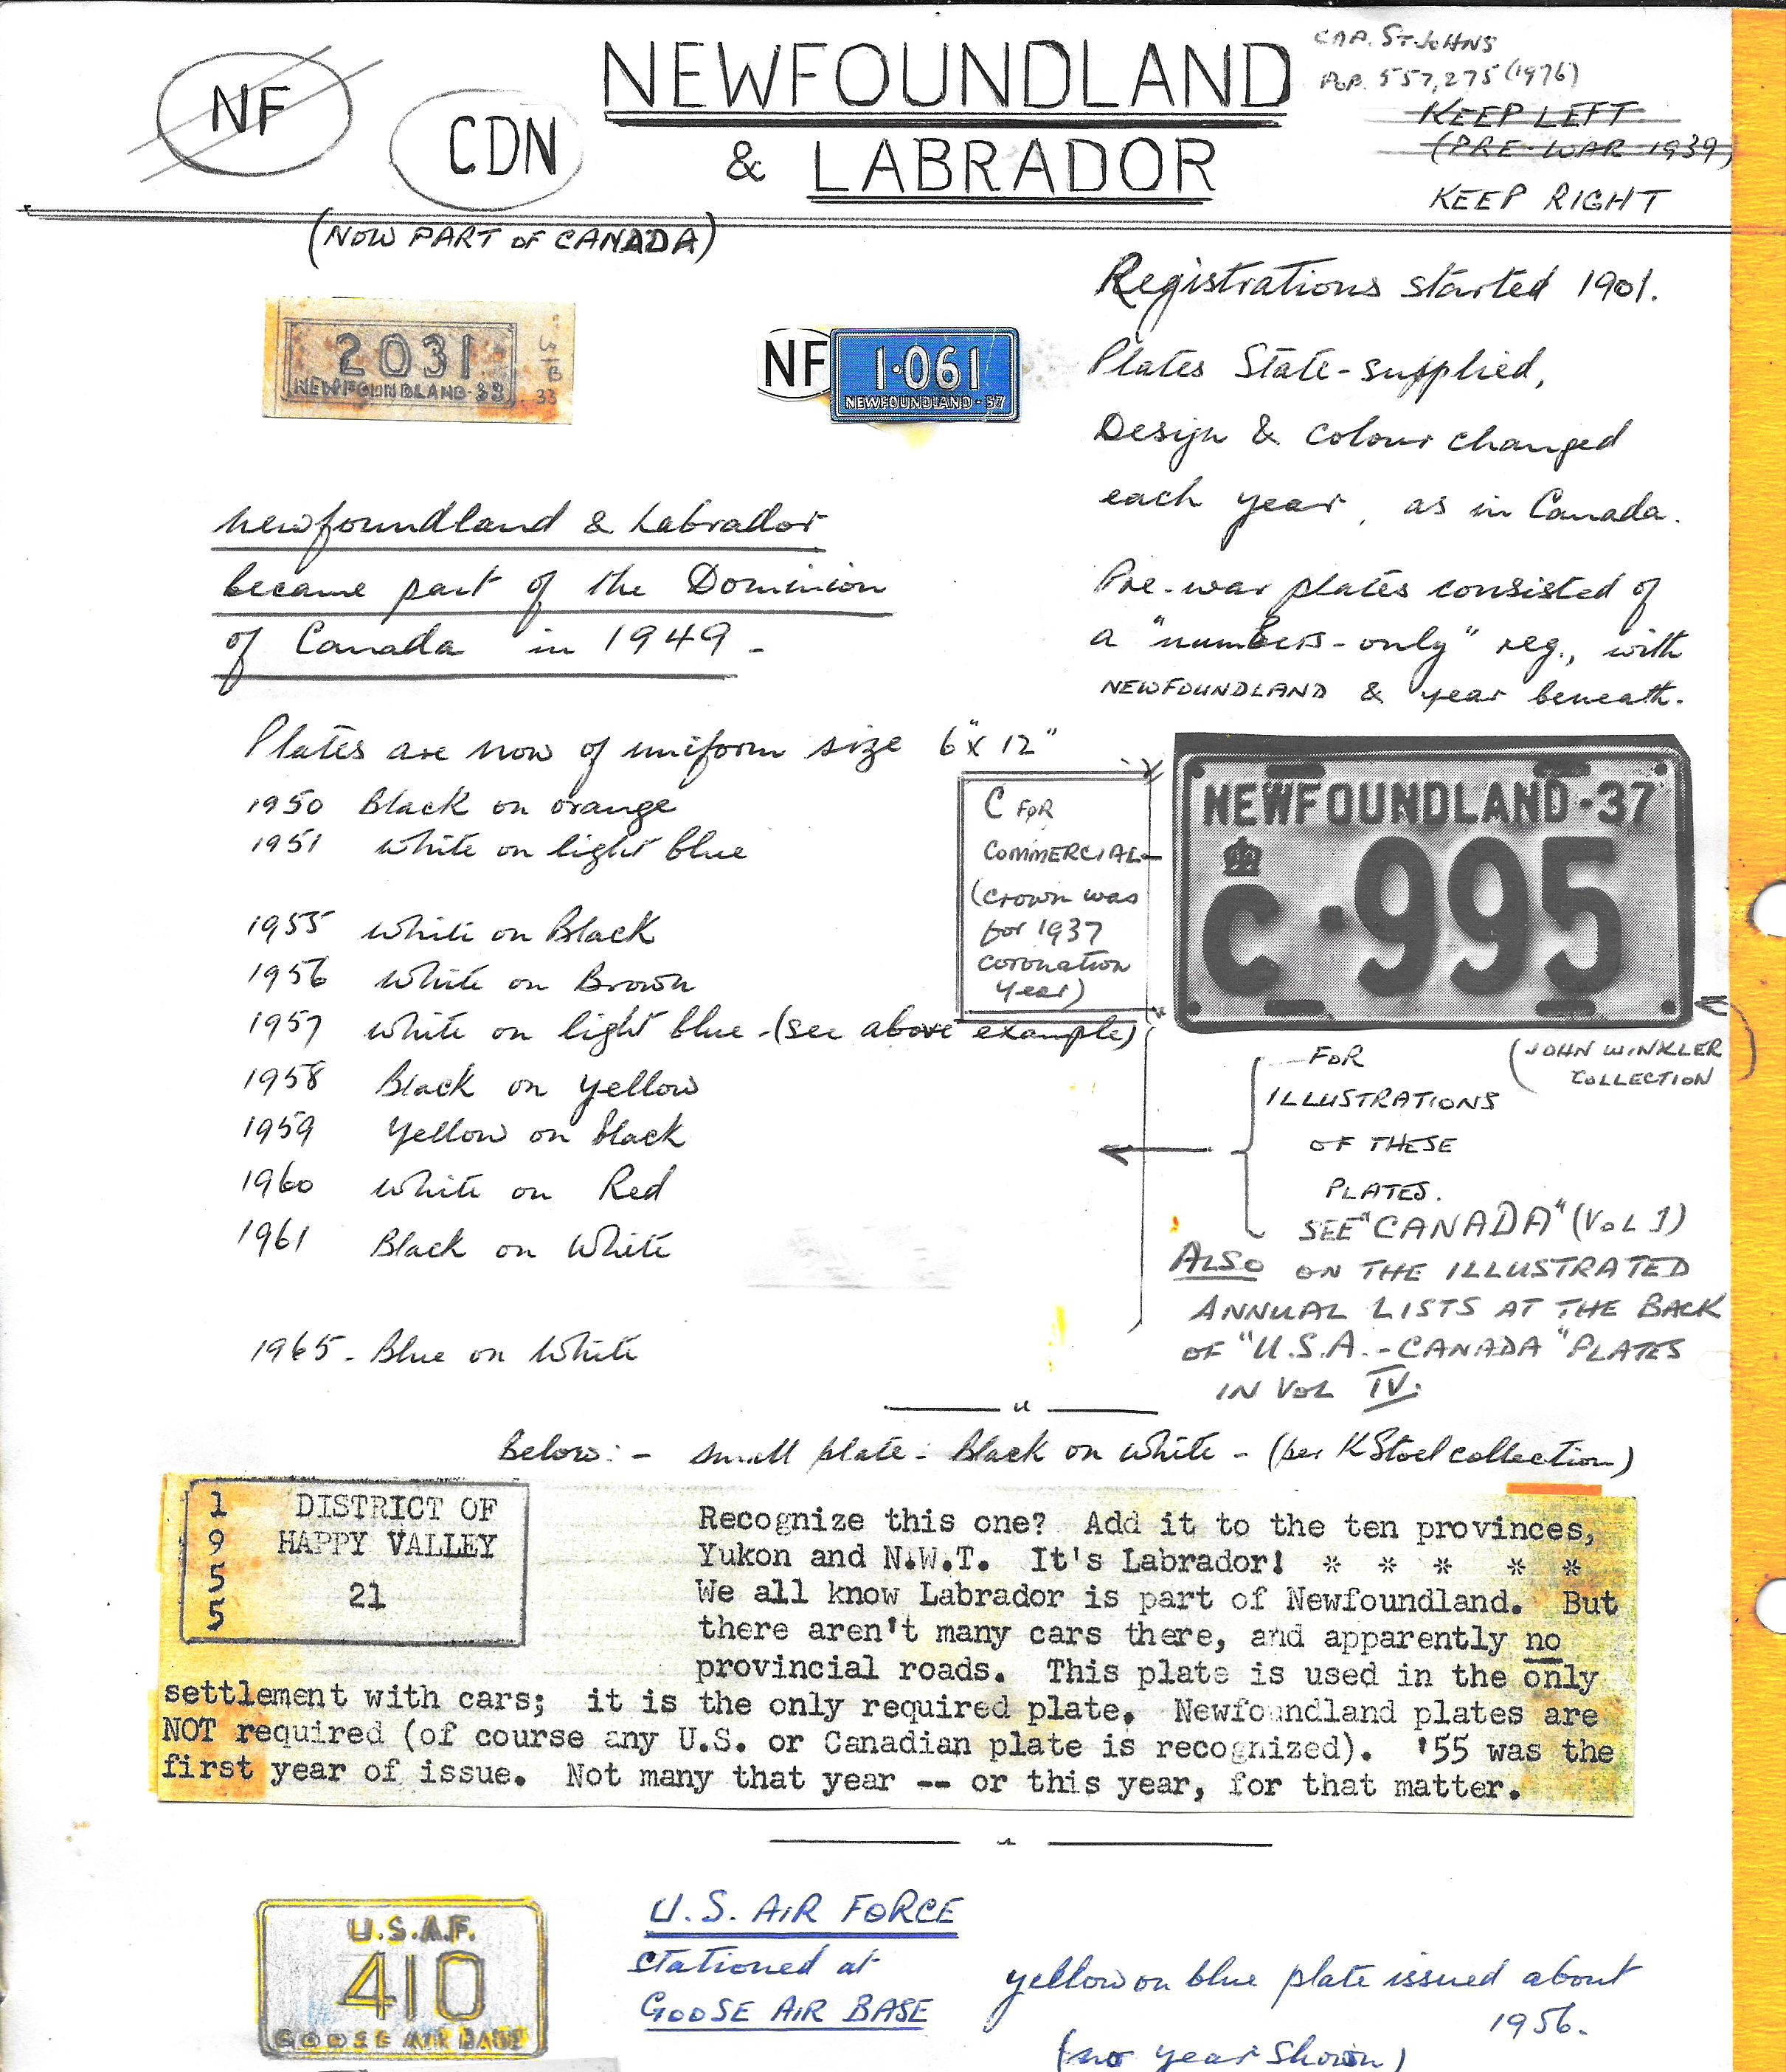 NF
CDN
NEWFOUNDLAND
& LABRADOR
CAP. ST JOHNS
POP. 557,275 (1976)
KEEP LEFT
(PRE-WAR 1939)
KEEP RIGHT
(NOW PART OF CANADA)
2031
NEWFOUNDLAND-33
33
NF
1·061
NEWFOUNDLAND-57
Registrations started 1901.
Plates State-supplied,
Design & colour changed
each year, as in Canada.
Pre-war plates consisted of
a "numbers-only" reg., with
NEWFOUNDLAND & year beneath.
Newfoundland & Labrador
became part of the Dominion
of Canada in 1949 -
Plates are now of uniform size 6" x 12"
1950 Black on orange
1951 White on light blue
1955 White on Black
1956 White on Brown
1957 White on light blue - (see above example)
1958 Black on yellow
1959 Yellow on black
1960 White on Red
1961 Black on White
1965 - Blue on White
C FOR
COMMERCIAL
(crown was
for 1937
coronation
year)
NEWFOUNDLAND-37
C·995
(JOHN WINKLER
COLLECTION
FOR
ILLUSTRATIONS
OF THESE
PLATES.
SEE "CANADA" (VOL 1)
ALSO ON THE ILLUSTRATED
ANNUAL LISTS AT THE BACK
OF "U.S.A.-CANADA" PLATES
IN VOL IV.
Below:- small plate - Black on white - (per K Stoel collection)
1955
DISTRICT OF
HAPPY VALLEY
21
Recognize this one? Add it to the ten provinces,
Yukon and N.W.T. It's Labrador! * * * * *
We all know Labrador is part of Newfoundland. But
there aren't many cars there, and apparently no
provincial roads. This plate is used in the only
settlement with cars; it is the only required plate. Newfoundland plates are
NOT required (of course any U.S. or Canadian plate is recognized). '55 was the
first year of issue. Not many that year -- or this year, for that matter.
U.S.A.F.
410
GOOSE AIR BASE
U.S. AIR FORCE
stationed at
GOOSE AIR BASE
yellow on blue plate issued about
1956.
(no year shown)